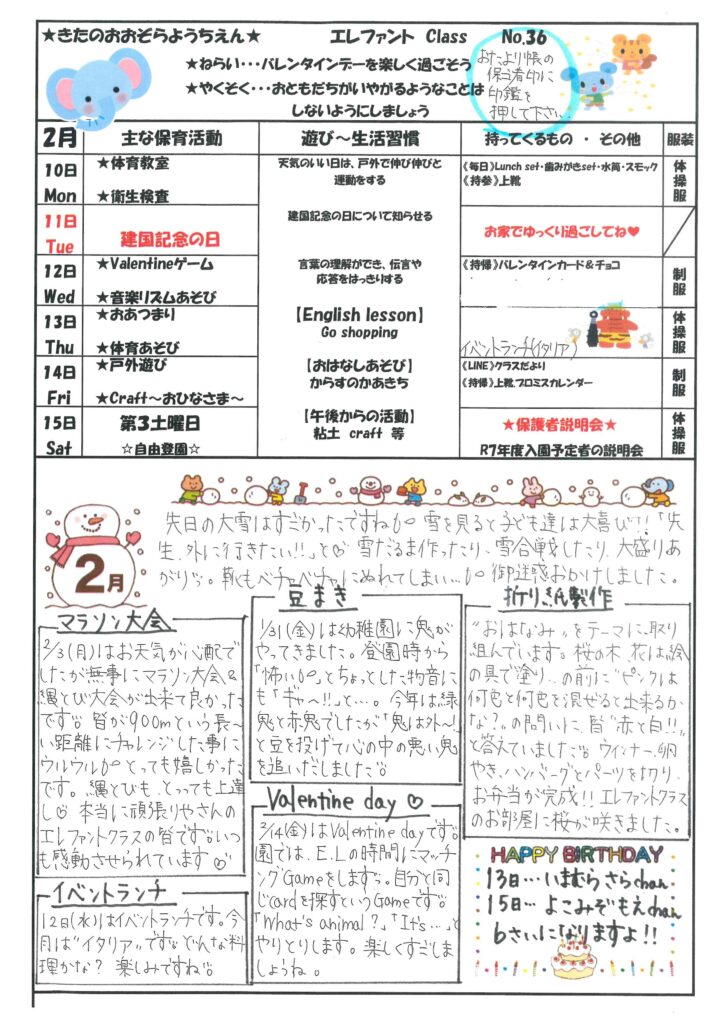 ★きたのおおぞらようちえん★ エレファント Class No.36
★ねらい・・・バレンタインデーを楽しく過ごそう
★やくそく・・・おともだちがいやがるようなことは
しないようにしましょう
おたより帳の
保護者印に
印鑑を
押して下さい
2月 主な保育活動 遊び～生活習慣 持ってくるもの ・ その他 服装
10日 Mon
★体育教室
★衛生検査
天気のいい日は、戸外で伸び伸びと
運動をする
《毎日》Lunch set・歯みがきset・水筒・スモック
《持参》上靴
体操服
11日 Tue
建国記念の日
建国記念の日について知らせる
お家でゆっくり過ごしてね♥
12日 Wed
★Valentineゲーム
★音楽リズムあそび
言葉の理解ができ、伝言や
応答をはっきりする
《持帰》バレンタインカード＆チョコ
制服
13日 Thu
★おあつまり
★体育あそび
【English lesson】
Go shopping
イベントランチ(イタリア)
体操服
14日 Fri
★戸外遊び
★Craft～おひなさま～
【おはなしあそび】
からすのかあきち
《LINE》クラスだより
《持帰》上靴、プロミスカレンダー
制服
15日 Sat
第3土曜日
☆自由登園☆
【午後からの活動】
粘土 craft 等
★保護者説明会★
R7年度入園予定者の説明会
体操服
2月
先日の大雪はすごかったですね 雪を見ると子ども達は大喜び!!「先
生、外に行きたい!!」と♡ 雪だるま作ったり、雪合戦したり、大盛りあ
がり。靴もベチャベチャにぬれてしまい… 御迷惑おかけしました。
マラソン大会
2/3(月)はお天気が心配で
したが無事にマラソン大会&
縄とび大会が出来て良かった
です 皆が900mという長〜
い距離にチャレンジした事に
ウルウル とっても嬉しかった
です。縄とびも、とっても上達
し♡ 本当に頑張りやさんの
エレファントクラスの皆です いつ
も感動させられています♡
イベントランチ
12日(水)はイベントランチです。今
月は“イタリア”です どんな料
理かな？ 楽しみですね
豆まき
1/31(金)は幼稚園に鬼が
やってきました。登園時から
「怖い」とちょっとした物音に
も「ギャー!!」と…。今年は緑
鬼と赤鬼でしたが「鬼は外〜」
と豆を投げて心の中の悪い鬼
を追いだしました
Valentine day ♡
2/14(金)はValentine dayです
園では、E.Lの時間にマッチ
ングGameをします。自分と同
じcardを探すというGameです
「What's animal?」「It's…」と
やりとりします。楽しくすごしま
しょうね。
折り紙製作
“おはなみ”をテーマに、取り
組んでいます。桜の木、花は絵
の具で塗り、の前に“ピンクは
何色と何色を混ぜると出来るか
な？”の問いに、皆“赤と白!!”
と答えていました ウィンナー、卵
やき、ハンバーグとパーツを切り、
お弁当が完成!! エレファントクラス
のお部屋に桜が咲きました。
HAPPY BIRTHDAY
13日…いまむら さらchan
15日…よこみぞ もえchan
6さいになりますよ!!